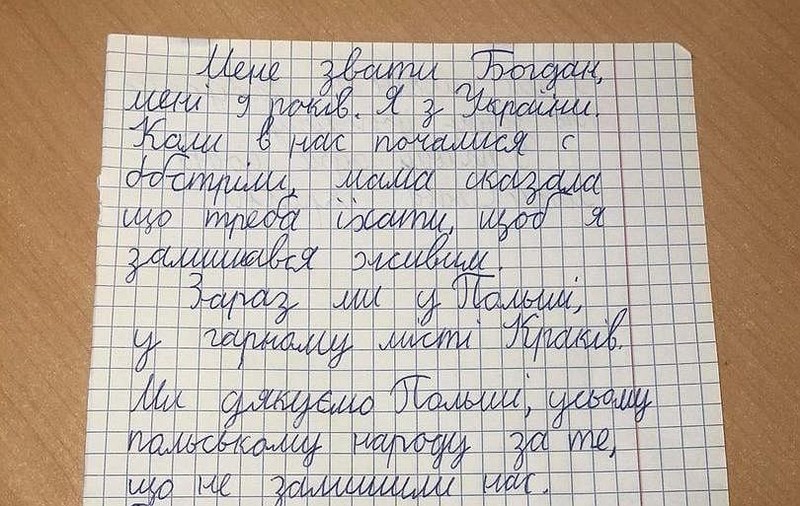 Мене звати Богдан,
мені 9 років. Я з України.
Коли в нас почалися с
обстріли, мама сказала
що треба їхати, щоб я
залишався живим.
Зараз ми у Польші,
у гарному місті Краків.
Ми дякуємо Польші, усьому
польському народу за те,
що не залишили нас.